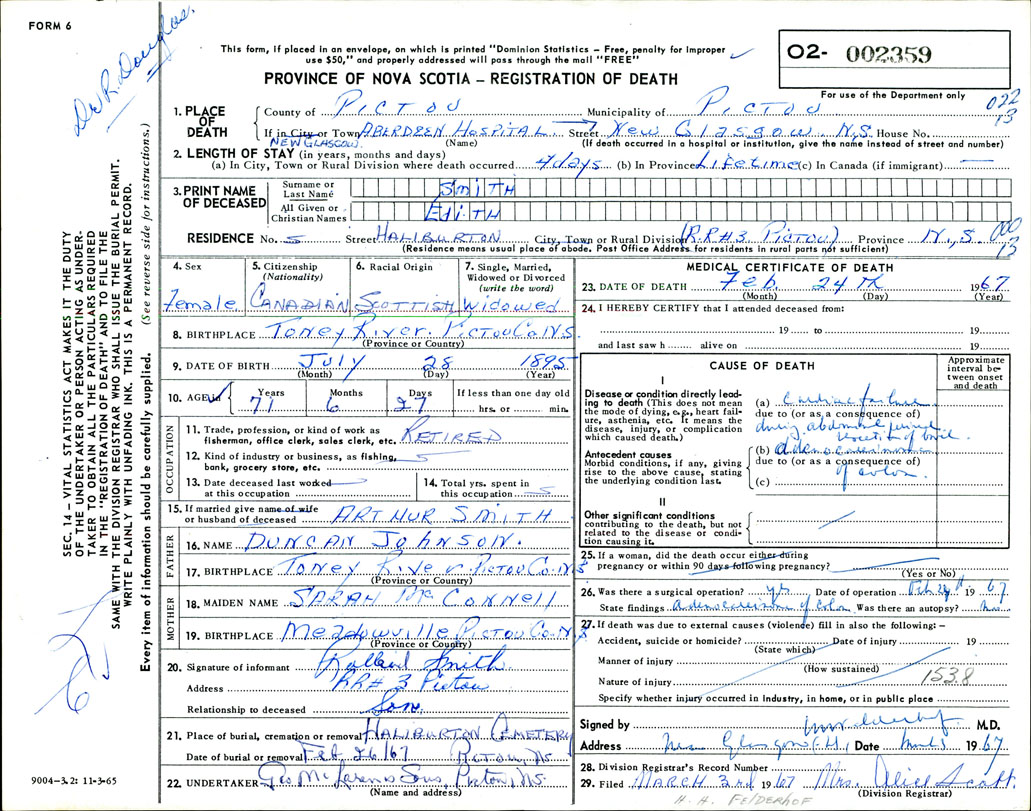 FORM 6
Dr R. Douglas.
This form, if placed in an envelope, on which is printed "Dominion Statistics – Free, penalty for improper
use $50," and properly addressed will pass through the mail "FREE"
PROVINCE OF NOVA SCOTIA – REGISTRATION OF DEATH
02- 002359
For use of the Department only
022
13
1. PLACE OF DEATH
County of PICTOU Municipality of PICTOU
If in City or Town ABERDEEN HOSPITAL Street New Glasgow N.S. House No.
NEW GLASGOW. (Name) (If death occurred in a hospital or institution, give the name instead of street and number)
2. LENGTH OF STAY (in years, months and days)
(a) In City, Town or Rural Division where death occurred 4 days (b) In Province Lifetime (c) In Canada (if immigrant) —
3. PRINT NAME OF DECEASED
Surname or Last Name SmiTH
All Given or Christian Names EdiTH
RESIDENCE No. 5 Street HALIBURTON City, Town or Rural Division (R.R#3 PicTou) Province N.S
000
13
(Residence means usual place of abode. Post Office Address for residents in rural parts not sufficient)
4. Sex
Female
5. Citizenship
(Nationality)
CANADIAN
6. Racial Origin
SCOTTISH
7. Single, Married,
Widowed or Divorced
(write the word)
Widowed
8. BIRTHPLACE Toney River. PicTou Co N.S.
(Province or Country)
9. DATE OF BIRTH July 28 1895
(Month) (Day) (Year)
10. AGE
Years Months Days If less than one day old
71 6 27 hrs. or min.
OCCUPATION
11. Trade, profession, or kind of work as
fisherman, office clerk, sales clerk, etc. RETIRED
12. Kind of industry or business, as fishing,
bank, grocery store, etc.
13. Date deceased last worked
at this occupation
14. Total yrs. spent in
this occupation
15. If married give name of wife
or husband of deceased ARTHUR SMITH
FATHER
16. NAME DUNCAN JOHNSON.
17. BIRTHPLACE Toney River PicTou Co. N.S
(Province or Country)
MOTHER
18. MAIDEN NAME SARAH Mc Connell
19. BIRTHPLACE Meadowville PicTou Co. N.S
(Province or Country)
20. Signature of informant Smith
Address RR# 3 Pictou
Relationship to deceased Son.
21. Place of burial, cremation or removal HALIBURTON CEMETERY
Date of burial or removal Feb 26/67 Pictou, N.S.
22. UNDERTAKER Geo McLaren & Sons, Pictou, N.S.
(Name and address)
MEDICAL CERTIFICATE OF DEATH
23. DATE OF DEATH Feb 24 th 1967
(Month) (Day) (Year)
24. I HEREBY CERTIFY that I attended deceased from:
19 to 19
and last saw h alive on 19
CAUSE OF DEATH
Approximate interval between onset and death
I
Disease or condition directly leading to death (This does not mean
the mode of dying, e.g., heart failure, asthenia, etc. It means the
disease, injury, or complication
which caused death.)
(a) Cardiac failure
due to (or as a consequence of)
during abdominal
Antecedent causes
Morbid conditions, if any, giving
rise to the above cause, stating
the underlying condition last.
(b) adenocarcinoma
due to (or as a consequence of)
of colon.
(c)
II
Other significant conditions
contributing to the death, but not
related to the disease or condition causing it.
25. If a woman, did the death occur either during
pregnancy or within 90 days following pregnancy?
(Yes or No)
26. Was there a surgical operation? yes Date of operation Feb. 24 19 67
State findings adenocarcinoma of Colon Was there an autopsy?
27. If death was due to external causes (violence) fill in also the following: –
Accident, suicide or homicide? Date of injury 19
(State which)
Manner of injury
(How sustained)
Nature of injury 153.8
Specify whether injury occurred in industry, in home, or in public place
Signed by M.D.
Address New Glasgow Date 1967
28. Division Registrar's Record Number
29. Filed MARCH 3rd 1967 Mrs. Alice Scott.
(Division Registrar)
H. A. FELDERHOF
9004-3.2: 11-3-65
SEC. 14 – VITAL STATISTICS ACT MAKES IT THE DUTY
OF THE UNDERTAKER OR PERSON ACTING AS UNDER-
TAKER TO OBTAIN ALL THE PARTICULARS REQUIRED
IN THE "REGISTRATION OF DEATH" AND TO FILE THE
SAME WITH THE DIVISION REGISTRAR WHO SHALL ISSUE THE BURIAL PERMIT.
WRITE PLAINLY WITH UNFADING INK. THIS IS A PERMANENT RECORD.
Every item of information should be carefully supplied. (See reverse side for instructions.)